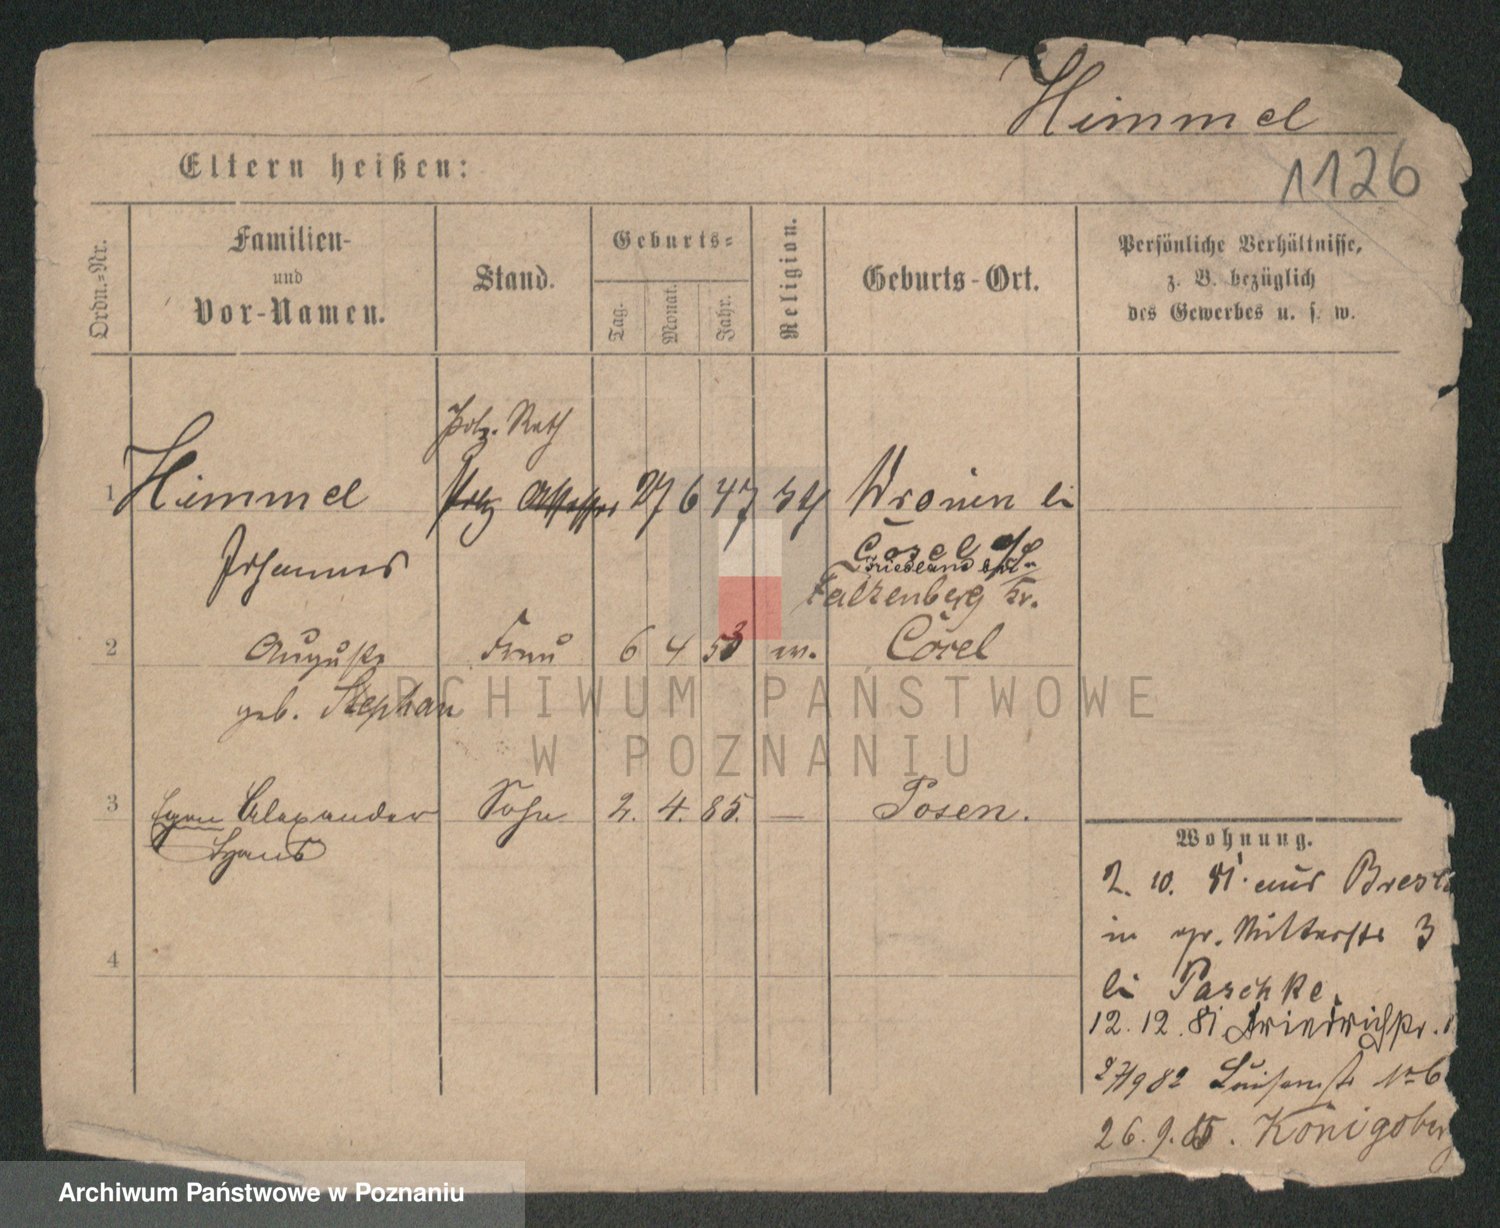 Himmel
1126
Eltern heißen:
Ordn.-Nr.
Familien-
und
Vor-Namen.
Stand.
Geburts-
Tag.
Monat.
Jahr.
Religion.
Geburts-Ort.
Persönliche Verhältnisse,
z. B. bezüglich
des Gewerbes u. s. w.
Polz. Rath
1 Himmel Polz Assessor 27 6 47 Wronin bei
Johannes Cosel o/S
Friedland bei
Falkenberg Kr.
2 Auguste Frau 6 4 53 w. Cosel
geb. Stephan
3 Egon Alexander Sohn 2. 4. 85. — Posen.
4
Wohnung.
2. 10. 81. aus Bresl
in gr. Ritterstr 3
bei Paschke.
12. 12. 81 Friedrichstr.
27/9 82 Luisenstr No 6
26. 9. 85. Königsber
ARCHIWUM PAŃSTWOWE
W POZNANIU
Archiwum Państwowe w Poznaniu